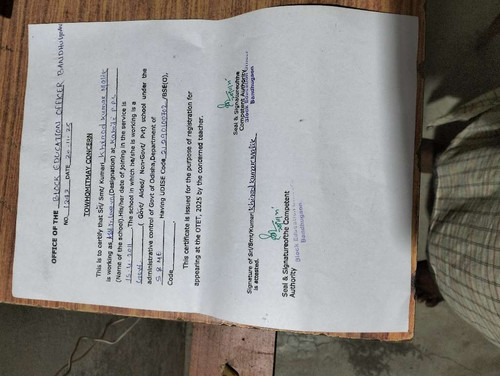 OFFICE OF THE BLOCK EDUCATION OFFICER BANDHUGAON
NO. DATE 20.11.25
TOWHOMITMAY CONCERN
This is to certify that Sri/ Smt/ Kumari Khirod Kumar Malik
is working as (Designation) at
(Name of the school).His/her date of joining in the service is
.The school in which he/she is working is a
( Govt/ Aided/ Non-Govt/ Pvt) school under the
administrative control of Govt of Odisha,Department of
S & ME Having UDISE Code /BSE(O),
Code
This certificate is issued for the purpose of registration for
appearing at the OTET, 2025 by the concerned teacher.
Seal & Signatureofthe
Competent Authority
Block Education
Bandhugaon
Signature of Sri/Smt/Kumari Khirod Kumar Malik
is attested.
Seal & Signatureofthe Competent
Authority Block Education
Bandhugaon